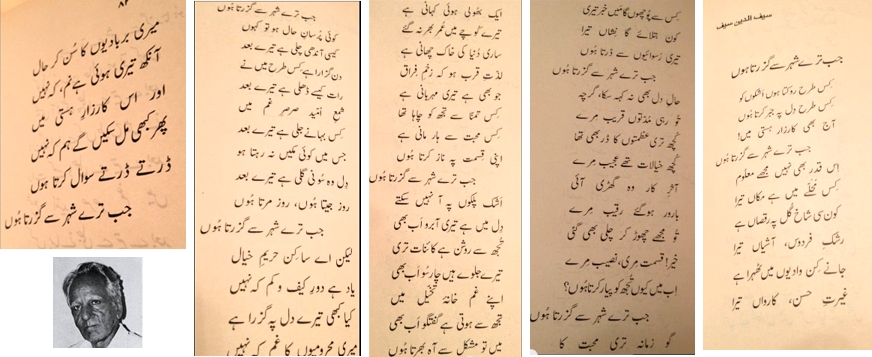 سیف الدین سیف
جب ترے شہر سے گزرتا ہوں
کِس طرح روکتا ہوں اشکوں کو
کِس طرح دل پہ جبر کرتا ہوں
آج بھی کارزارِ ہستی میں!
جب ترے شہر سے گزرتا ہوں
اِس قدر بھی نہیں مجھے معلوم
کِس محلّے میں ہے مکاں تیرا
کون سی شاخِ گُل پہ رقصاں ہے
رشکِ فردوس، آشیاں تیرا
جانے کِن وادیوں میں ٹھہرا ہے
غیرتِ حسن، کارواں تیرا
کِس سے پُوچھوں گا میں خبر تیری
کون بتلائے گا نشاں تیرا
تیری رُسوائیوں سے ڈرتا ہُوں
جب ترے شہر سے گزرتا ہُوں
حالِ دل بھی نہ کہہ سکا، گرچہ
تُو رہی مُدّتوں قریب مرے
کُچھ تری عظمتوں کا ڈر بھی تھا
کُچھ خیالات تھے عجیب مرے
آخرِ کار وہ گھڑی آئی
بارور ہوگئے رقیب مرے
تُو مجھے چھوڑ کر چلی بھی گئی
خیر! قسمت مری، نصیب مرے
اب میں کیوں تجھ کو پیار کرتا ہُوں؟
جب ترے شہر سے گزرتا ہُوں
گو زمانہ تری محبت کا
ایک بھُولی ہوئی کہانی ہے
تیرے کُوچے میں عُمر بھر نہ گئے
ساری دُنیا کی خاک چھانی ہے
لذّتِ قرب ہو کہ زخمِ فِراق
جو بھی ہے تیری مہربانی ہے
کِس تمنّا سے تجھ کو چاہا تھا
کس محبت سے ہار مانی ہے
اپنی قسمت پہ ناز کرتا ہُوں
جب ترے شہر سے گزرتا ہُوں
اشک پلکوں پہ آ نہیں سکتے
دِل میں ہے تیری آبرو اَب بھی
تجھ سے روشن ہے کائنات تری
تیرے جلوے ہیں چار سُو اب بھی
اپنے غم خانۂ تخیّل میں
تجھ سے ہوتی ہے گفتگو اَب بھی
میں تو مشکل سے آہ بھرتا ہُوں
جب ترے شہر سے گزرتا ہُوں
کوئی پُرسانِ حال ہو تو کہوں
کیسی آندھی چلی ہے تیرے بعد
دن گزارا ہے کس طرح میں نے
رات کیسے ڈھلی ہے تیرے بعد
شمعِ اُمّید صرصرِ غم میں
کِس بہانے جلی ہے تیرے بعد
جس میں کوئی مکیں نہ رہتا ہو
دِل وہ سُونی گلی ہے تیرے بعد
روز جیتا ہوں، روز مرتا ہُوں
جب ترے شہر سے گزرتا ہُوں
لیکن اے ساکِنِ حریمِ خیال
یاد ہے دورِ کیف و کم کہ نہیں
کیا کبھی تیرے دل پہ گزرا ہے
میری محرومیوں کا غم کہ نہیں
۸۲
میری بربادیوں کا سُن کر حال
آنکھ تیری ہوئی ہے نم، کہ نہیں
اور اس کارزارِ ہستی میں
پھر کبھی مل سکیں گے ہم کہ نہیں
ڈرتے ڈرتے سوال کرتا ہوں
جب ترے شہر سے گزرتا ہُوں